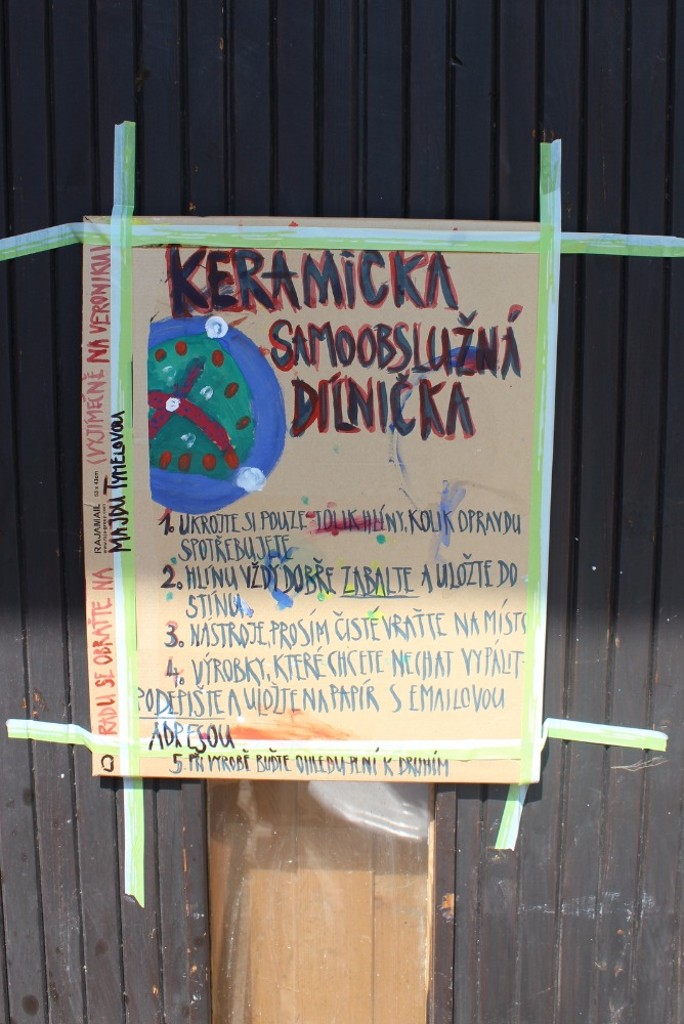 KERAMICKA
SAMOOBSLUŽNÁ
DÍLNIČKA
1. UKROJTE SI POUZE TOLIK HLÍNY, KOLIK OPRAVDU
SPOTŘEBUJETE
2. HLÍNU VŽDY DOBŘE ZABALTE A ULOŽTE DO
STÍNU.
3. NÁSTROJE, PROSÍM ČISTÉ VRAŤTE NA MÍSTO
4. VÝROBKY, KTERÉ CHCETE NECHAT VYPÁLIT-
PODEPIŠTE A ULOŽTE NA PAPÍR S EMAILOVOU
ADRESOU
5. PŘI VÝROBĚ BUĎTE OHLEDU-PLNÍ K DRUHÝM
O RADU SE OBRAŤTE NA (VÝJIMEČNĚ NA VERONIKU)
MAJDU TYMELOVOU
RAJAMAIL